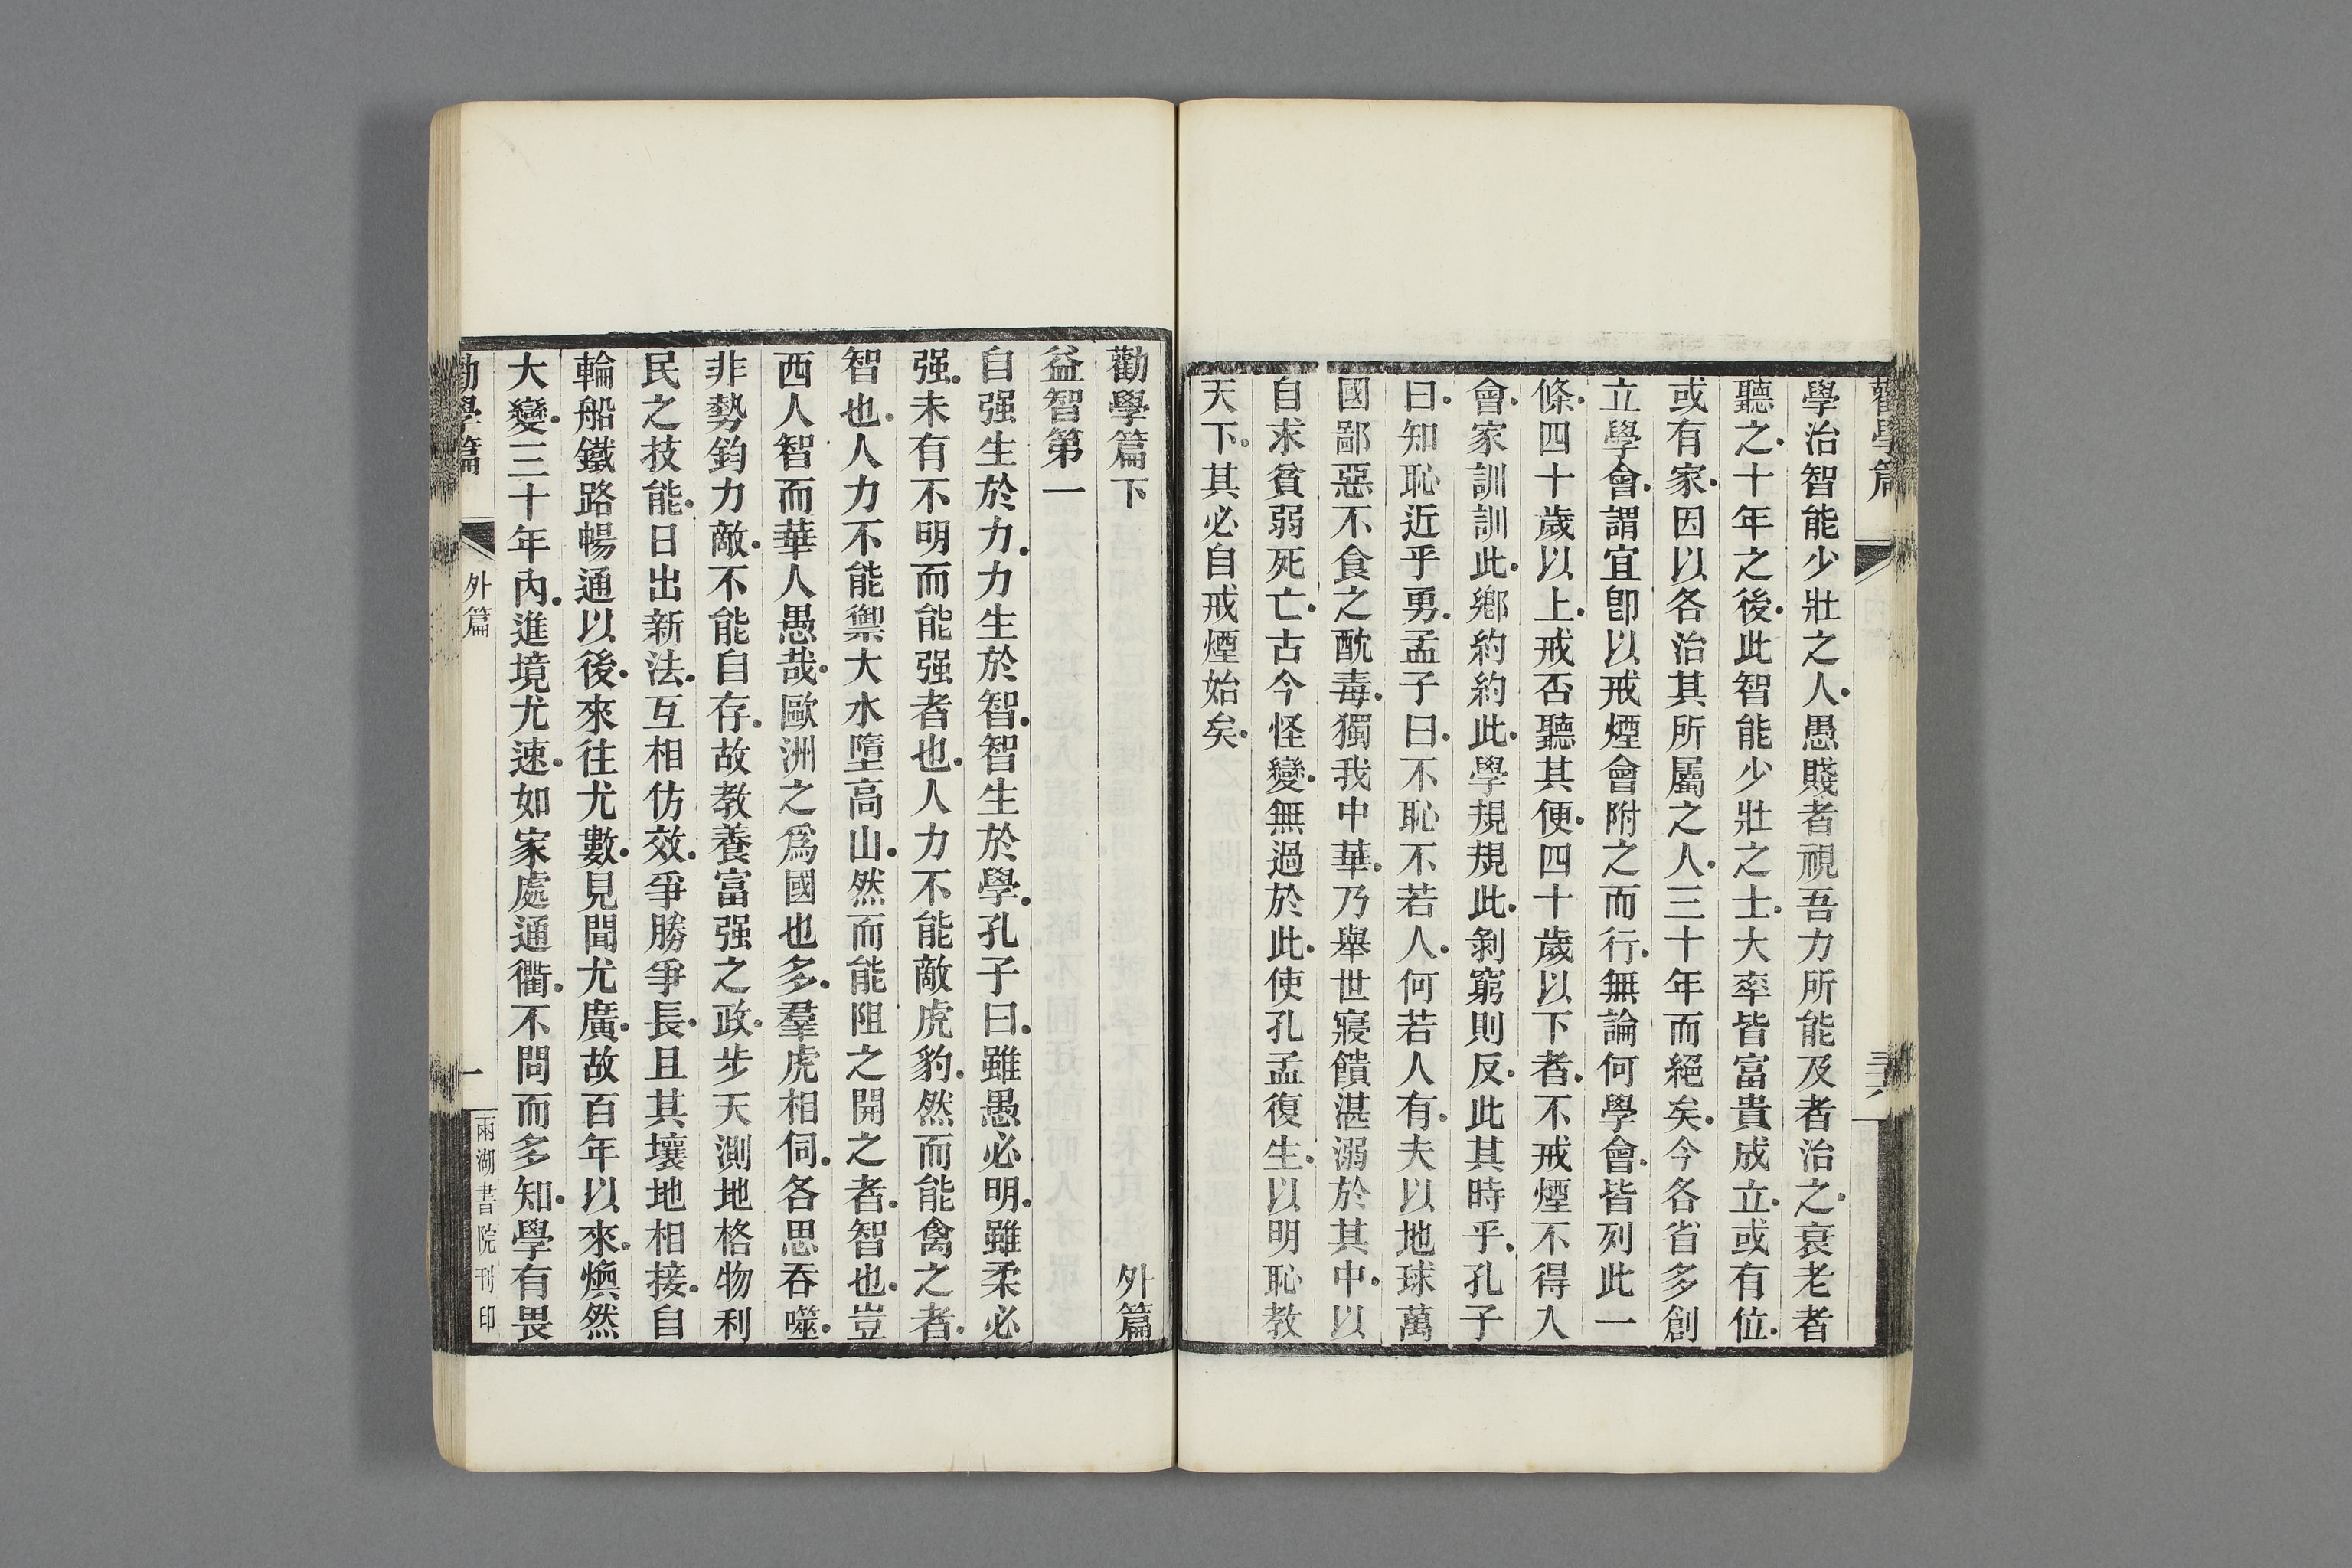 勸學篇
三六
學治智能少壯之人愚賤者視吾力所能及者治之衰老者
聽之十年之後此智能少壯之士大率皆富貴成立或有位
或有家因以各治其所屬之人三十年而絕矣今各省多創
立學會謂宜卽以戒煙會附之而行無論何學會皆列此一
條四十歲以上戒否聽其便四十歲以下者不戒煙不得入
會家訓訓此鄉約約此學規規此剝窮則反此其時乎孔子
曰知恥近乎勇孟子曰不恥不若人何若人有夫以地球萬
國鄙惡不食之酖毒獨我中華乃舉世寢饋湛溺於其中以
自求貧弱死亡古今怪變無過於此使孔孟復生以明恥教
天下其必自戒煙始矣
勸學篇下 外篇
益智第一
自强生於力力生於智智生於學孔子曰雖愚必明雖柔必
强未有不明而能强者也人力不能敵虎豹然而能禽之者
智也人力不能禦大水墮高山然而能阻之開之者智也豈
西人智而華人愚哉歐洲之爲國也多羣虎相伺各思吞噬
非勢鈞力敵不能自存故教養富强之政步天測地格物利
民之技能日出新法互相仿效爭勝爭長且其壤地相接自
輪船鐵路暢通以後來往尤數見聞尤廣故百年以來煥然
大變三十年內進境尤速如家處通衢不問而多知學有畏
勸學篇 外篇 一 兩湖書院刊印